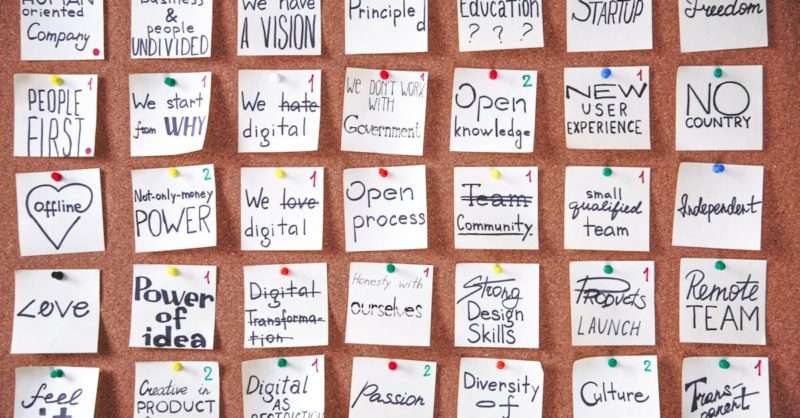 oriented
Company.
&
people
UNDIVIDED
We have
A VISION
Principled
Education
? ? ?
STARTUP
Freedom
1
PEOPLE
FIRST.
1
We start
from WHY
1
We hate
digital
1
WE DON'T WORK
WITH
Government
2
Open
knowledge
1
NEW
USER
EXPERIENCE
1
NO
COUNTRY
offline
2
Not-only-money
POWER
1
We love
digital
Open
process
1
Team
Community
1
small
qualified
team
Independent
Love
1
Power
of
idea
Digital
Transforma-
tion
1
Honesty with
ourselves
Strong
Design
Skills
1
Products
LAUNCH
2
Remote
TEAM
feel
it
2
Creative in
PRODUCT
1
Digital
AS
2
Passion
1
Diversity
of
2
Culture
1
Trans-
parent